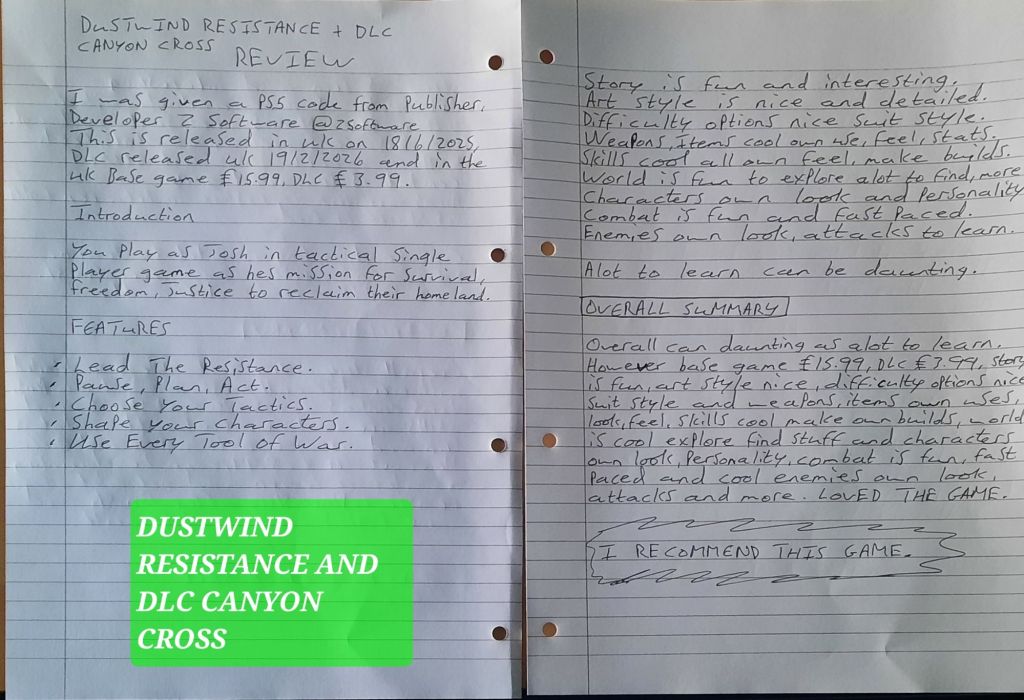 DUSTWIND RESISTANCE + DLC
CANYON CROSS REVIEW
I was given a PS5 code from Publisher,
Developer Z Software @ZSoftware
This is released in uk on 18/6/2025,
DLC released uk 19/2/2026 and in the
uk Base game £15.99, DLC £3.99.
Introduction
You Play as Josh in tactical Single
Player game as hes mission for Survival,
freedom, Justice to reclaim their homeland.
FEATURES
• Lead The Resistance.
• Pause, Plan, Act.
• Choose Your Tactics.
• Shape Your Characters.
• Use Every Tool of War.
DUSTWIND
RESISTANCE AND
DLC CANYON
CROSS
Story is fun and interesting.
Art style is nice and detailed.
Difficulty options nice Suit Style.
Weapons, Items cool own use, feel, Stats.
Skills cool all own feel, make builds.
World is fun to explore alot to find, more
Characters own look and Personality
Combat is fun and fast Paced.
Enemies own look, attacks to learn.
Alot to learn can be daunting.
OVERALL SUMMARY
Overall can daunting as alot to learn.
However base game £15.99, DLC £3.99, Story
is fun, art style nice, difficulty options nice
Suit style and weapons, items own uses,
look, feel, skills cool make own builds, world
is cool explore find stuff and characters
own look, Personality, combat is fun, fast
Paced and cool enemies own look,
attacks and more. LOVED THE GAME.
I RECOMMEND THIS GAME.